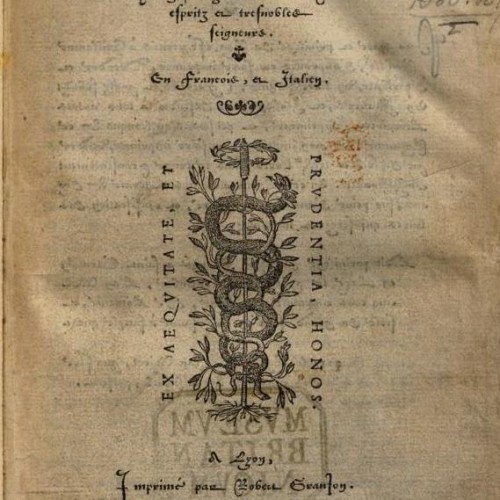 espritz et tresnobles
seigneurs.
En Francois, et Italien.
EX AEQVITATE, ET
PRVDENTIA, HONOS.
MVSEVM
BRITAN
A Lyon,
Imprimé par Robert Granjon.